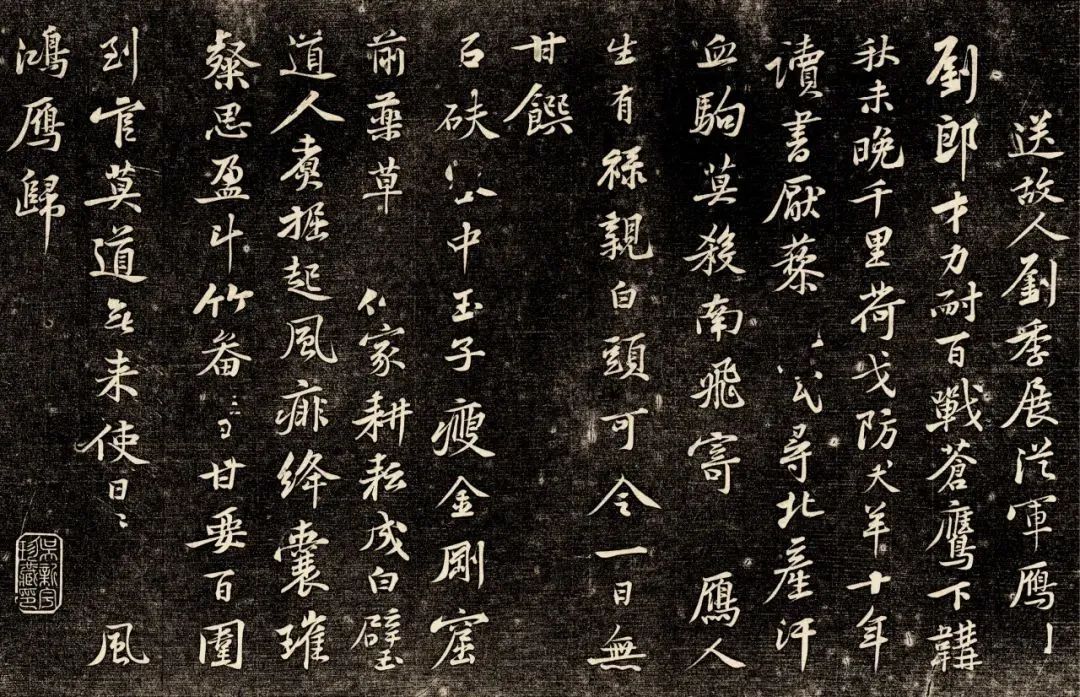 送故人劉季展從軍鴈
劉郎才力耐百戰蒼鷹下韝
秋未晚千里荷戈防犬羊十年
讀書厭藜尋北產汗
血駒莫殺南飛寄鴈人
生有祿親白頭可令一日無
甘饌
石砆谷中玉子瘦金剛窟
前藥草仙家耕耘成白璧
道人煑掘起風痱絳囊璀
粲思盈斗竹畚甘要百圍
到官莫道無來使日〻風
鴻鴈歸
吳新宇
珍藏印